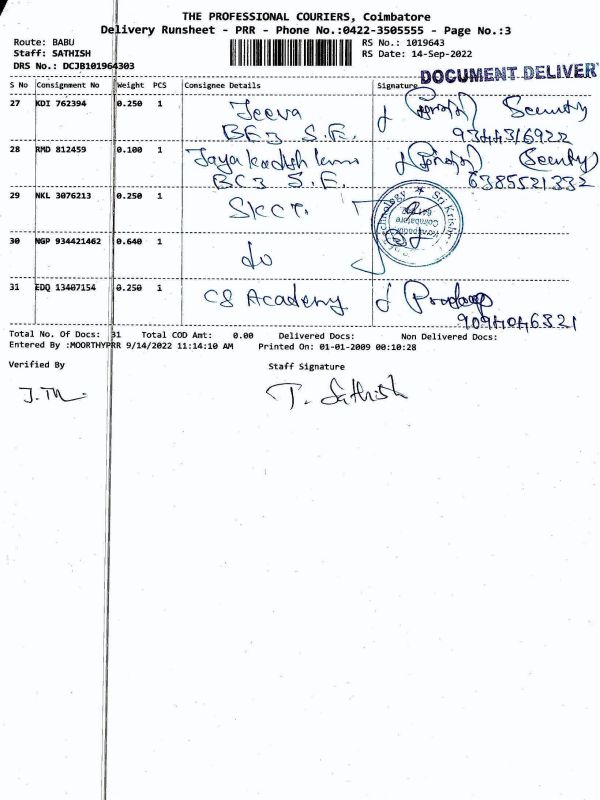 THE PROFESSIONAL COURIERS, Coimbatore
Delivery Runsheet - PRR - Phone No.:0422-3505555 - Page No.:3
Route: BABU
Staff: SATHISH
DRS No.: DCJB101964303
RS No.: 1019643
RS Date: 14-Sep-2022
DOCUMENT DELIVER
S No Consignment No Weight PCS Consignee Details Signature
27 KDI 762394 0.250 1 Jeeva Security
S.E. 9344316922
28 RMD 812459 0.100 1 Security
S.E. 6385521332
29 NKL 3076213 0.250 1 SKCT.
Sri Krish
Coimbatore
30 NGP 934421462 0.640 1 do
31 EDQ 13407154 0.250 1 CS Academy Pradeep
9094046321
Total No. Of Docs: 31 Total COD Amt: 0.00 Delivered Docs: Non Delivered Docs:
Entered By :MOORTHYPRR 9/14/2022 11:14:10 AM Printed On: 01-01-2009 00:10:28
Verified By Staff Signature
T. Sathish